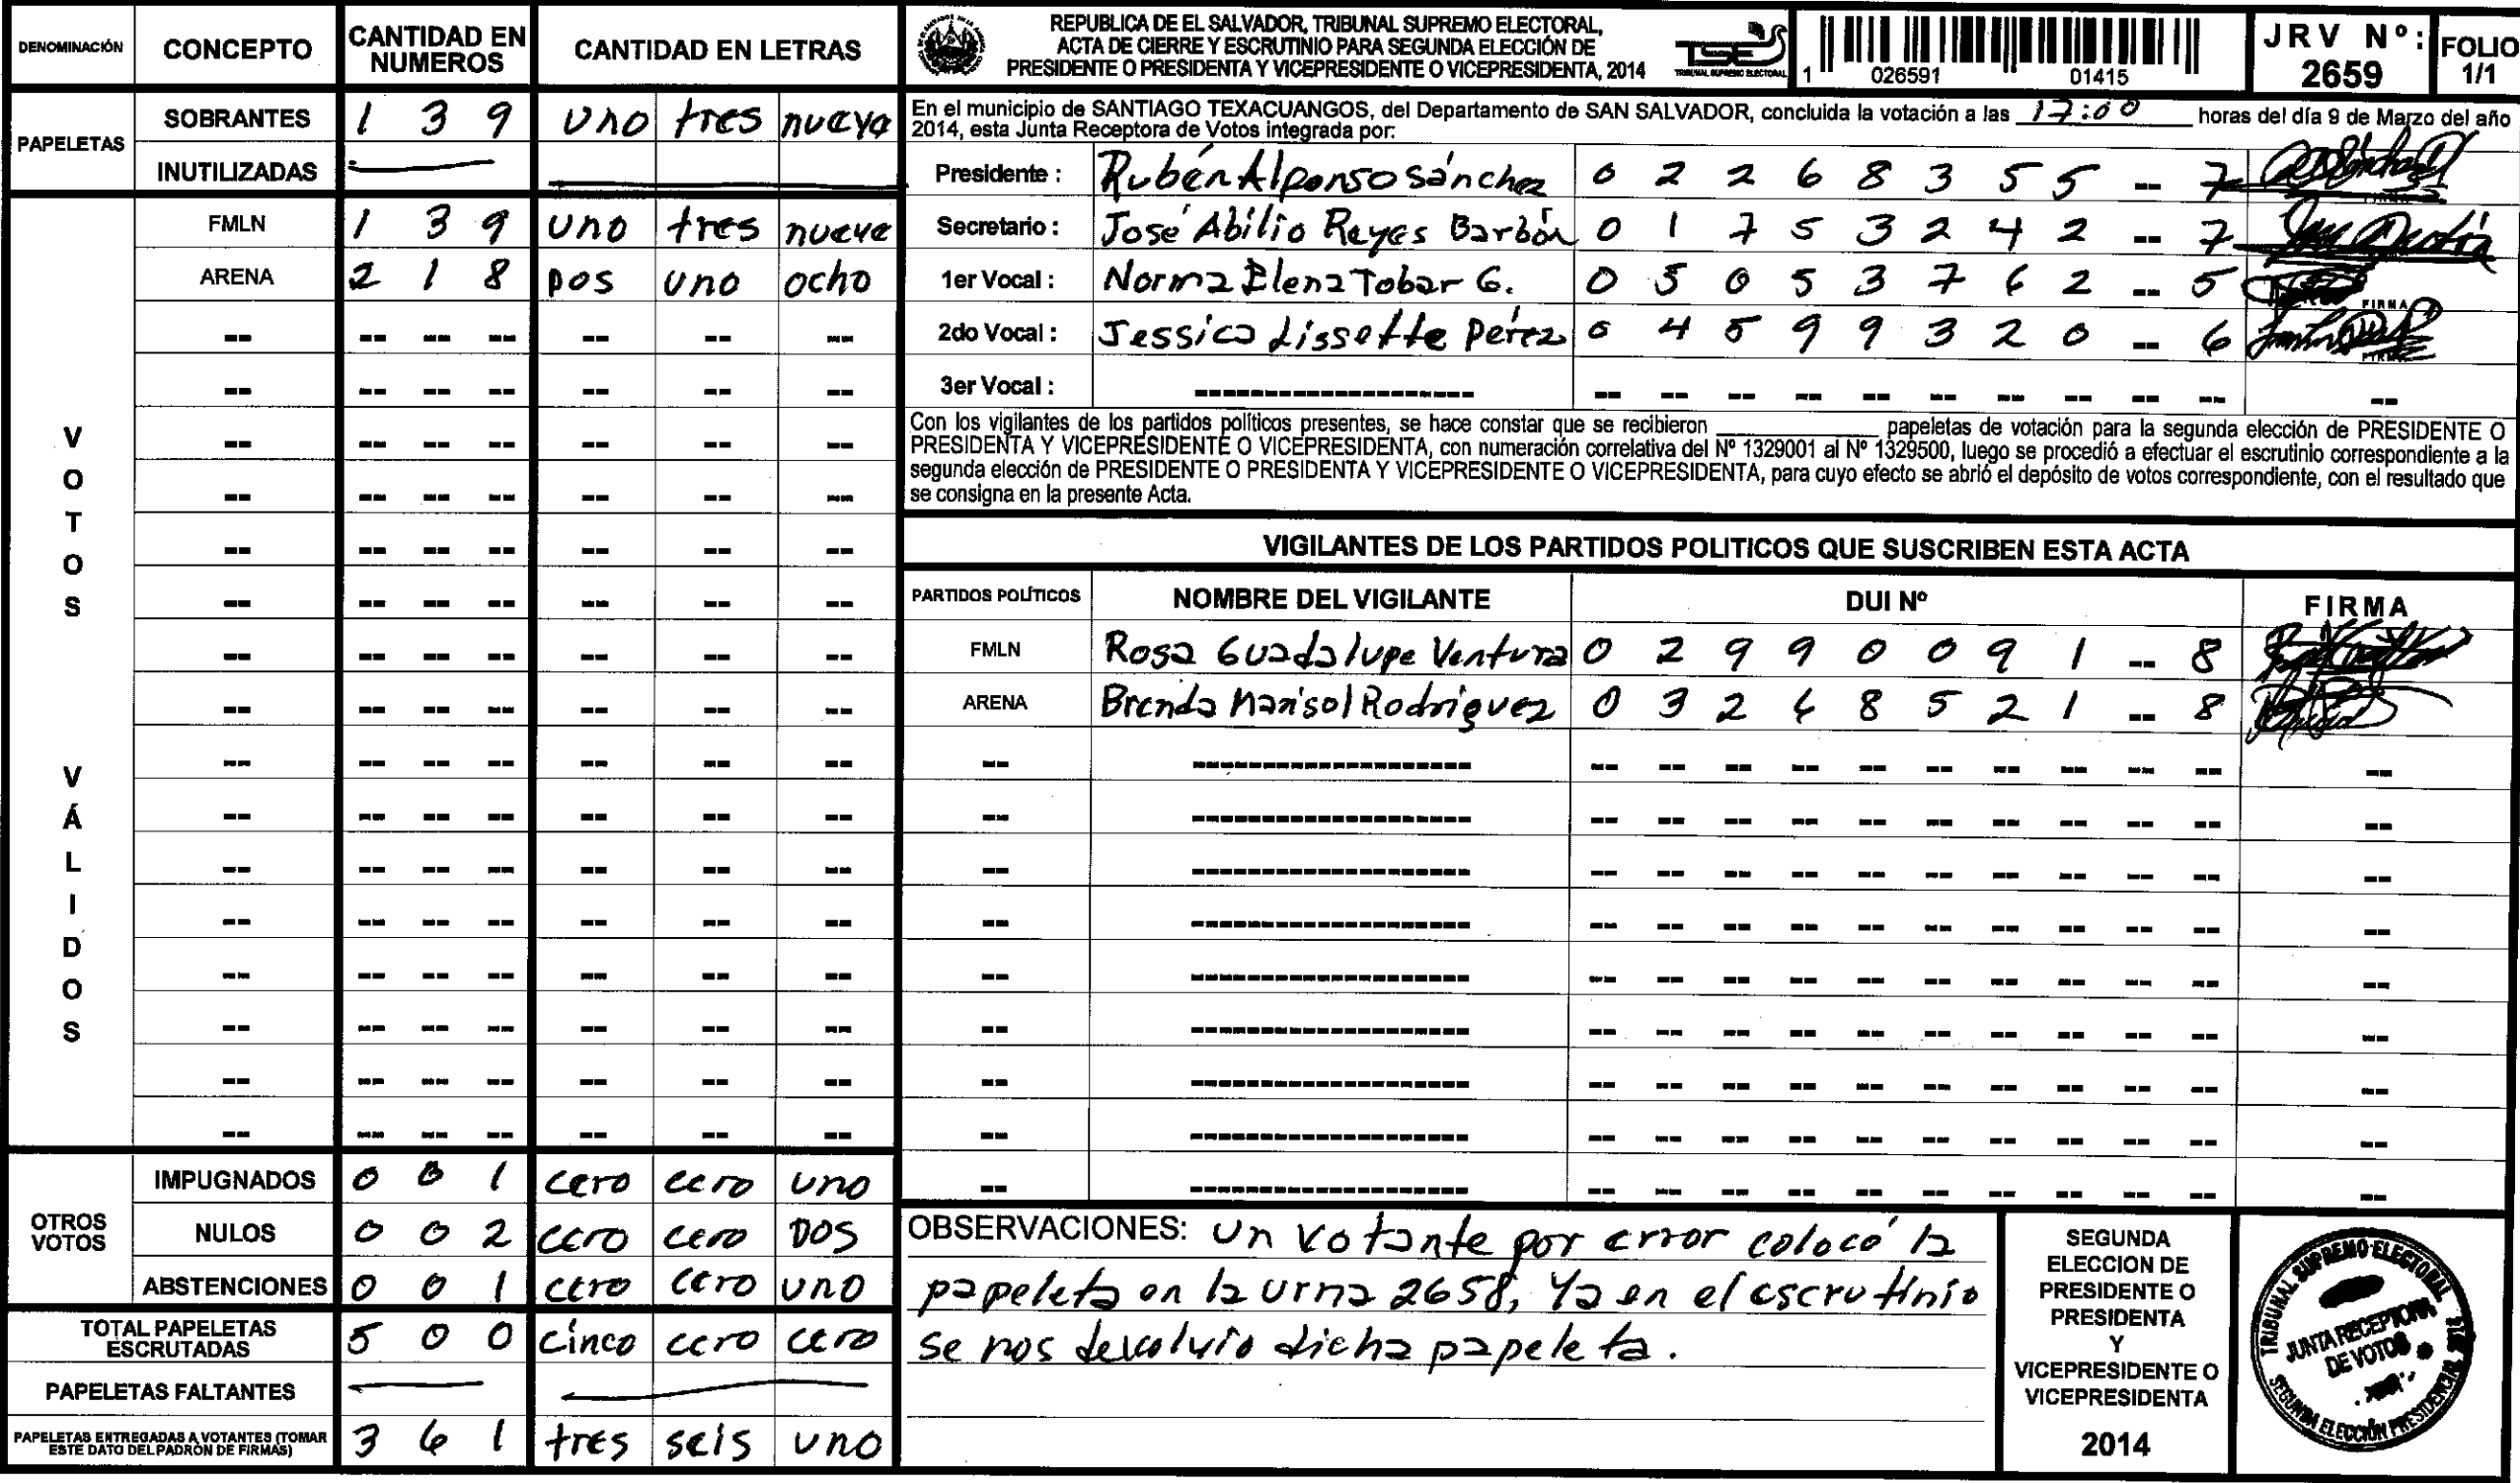 DENOMINACIÓN CONCEPTO CANTIDAD EN NUMEROS CANTIDAD EN LETRAS
PAPELETAS
SOBRANTES 1 3 9 uno tres nueve
INUTILIZADAS
VOTOS VÁLIDOS
FMLN 1 3 9 uno tres nueve
ARENA 2 1 8 Dos uno ocho
OTROS VOTOS
IMPUGNADOS 0 0 1 cero cero uno
NULOS 0 0 2 cero cero DOS
ABSTENCIONES 0 0 1 cero cero uno
TOTAL PAPELETAS ESCRUTADAS 5 0 0 cinco cero cero
PAPELETAS FALTANTES
PAPELETAS ENTREGADAS A VOTANTES (TOMAR ESTE DATO DEL PADRÓN DE FIRMAS) 3 6 1 tres seis uno
REPUBLICA DE EL SALVADOR, TRIBUNAL SUPREMO ELECTORAL,
ACTA DE CIERRE Y ESCRUTINIO PARA SEGUNDA ELECCIÓN DE
PRESIDENTE O PRESIDENTA Y VICEPRESIDENTE O VICEPRESIDENTA, 2014
TSE
TRIBUNAL SUPREMO ELECTORAL
1 026591 01415
JRV Nº: 2659
FOLIO 1/1
En el municipio de SANTIAGO TEXACUANGOS, del Departamento de SAN SALVADOR, concluida la votación a las 17:00 horas del día 9 de Marzo del año
2014, esta Junta Receptora de Votos integrada por:
Presidente : Rubén Alponso sánchez 0 2 2 6 8 3 5 5 -- 7
Secretario : José Abilio Reyes Barbón 0 1 7 5 3 2 4 2 -- 7
1er Vocal : Norma Elena Tobar G. 0 5 0 5 3 7 6 2 -- 5
2do Vocal : Jessica Lissette Pérez 0 4 5 9 9 3 2 0 -- 6
3er Vocal :
Con los vigilantes de los partidos políticos presentes, se hace constar que se recibieron ________ papeletas de votación para la segunda elección de PRESIDENTE O
PRESIDENTA Y VICEPRESIDENTE O VICEPRESIDENTA, con numeración correlativa del Nº 1329001 al Nº 1329500, luego se procedió a efectuar el escrutinio correspondiente a la
segunda elección de PRESIDENTE O PRESIDENTA Y VICEPRESIDENTE O VICEPRESIDENTA, para cuyo efecto se abrió el depósito de votos correspondiente, con el resultado que
se consigna en la presente Acta.
VIGILANTES DE LOS PARTIDOS POLITICOS QUE SUSCRIBEN ESTA ACTA
PARTIDOS POLÍTICOS NOMBRE DEL VIGILANTE DUI Nº FIRMA
FMLN Rosa Guadalupe Ventura 0 2 9 9 0 0 9 1 -- 8
ARENA Brenda Marisol Rodriguez 0 3 2 6 8 5 2 1 -- 8
OBSERVACIONES: Un votante por error colocó la
papeleta en la urna 2658, Ya en el escrutinio
se nos devolvio dicha papeleta.
SEGUNDA
ELECCION DE
PRESIDENTE O
PRESIDENTA
Y
VICEPRESIDENTE O
VICEPRESIDENTA
2014
TRIBUNAL SUPREMO ELECTORAL
JUNTA RECEPTORA
DE VOTOS
SEGUNDA ELECCIÓN PRESIDENCIAL